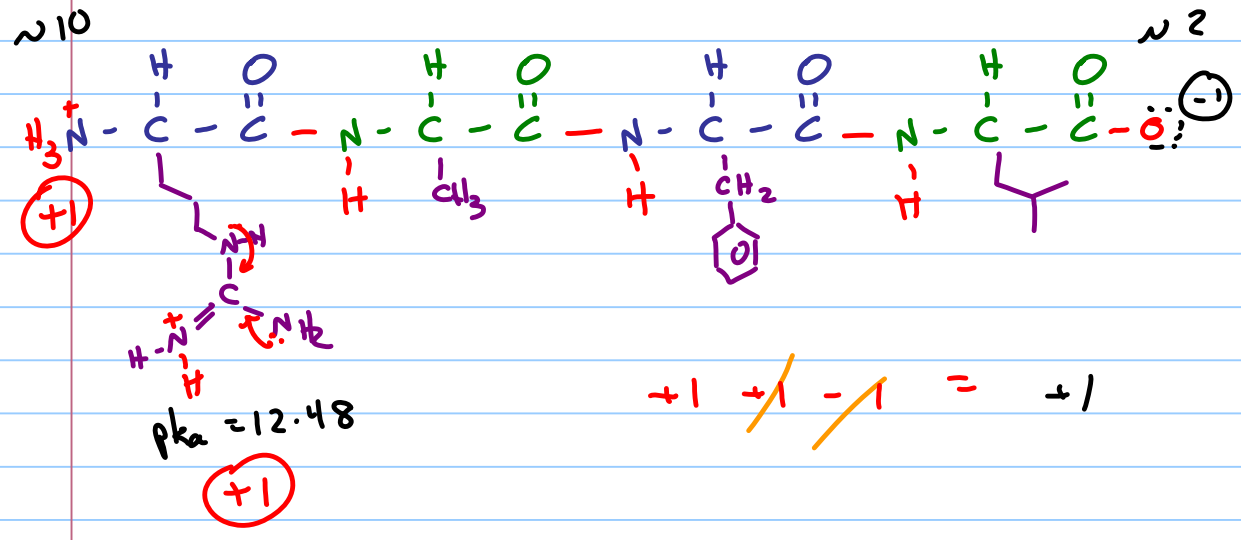 ~10 ~2
H O H O H O H O
H₃N⁺ - C - C - N - C - C - N - C - C - N - C - C - O -1
+1 H CH₃ H CH₂ H
N-H
C
+
H-N NH₂
H
+1 +1 -1 = +1
pka = 12.48
+1